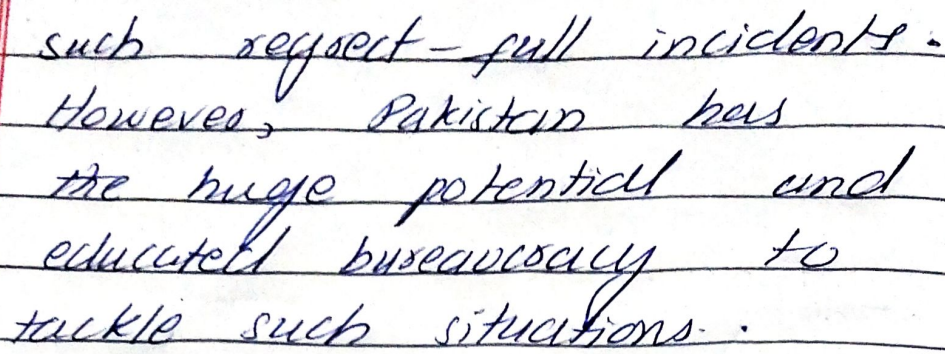 such regrect-full incidents.
However, Pakistan has
the huge potential and
educated bureaucracy to
tackle such situations.